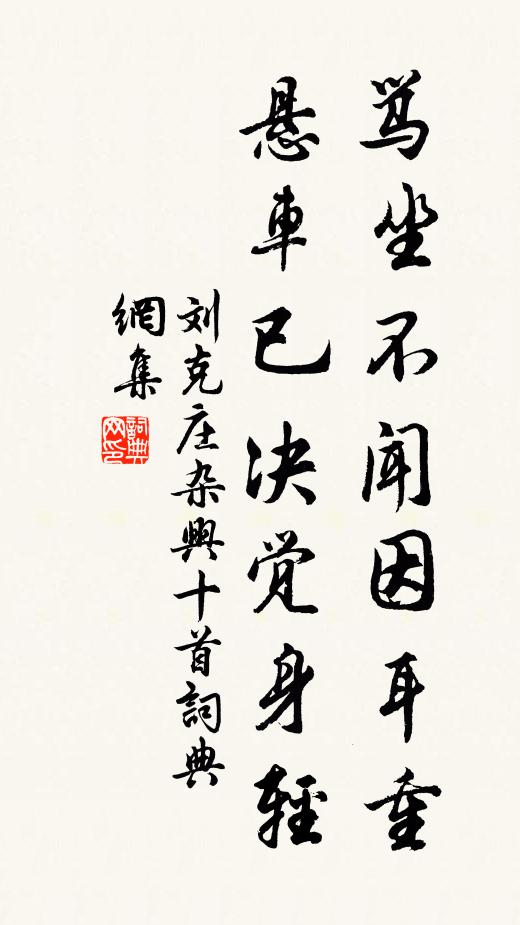 骂坐不闻因耳重
悬車已决觉身輕
刘克庄杂興十首詞典
網集
詞典网印